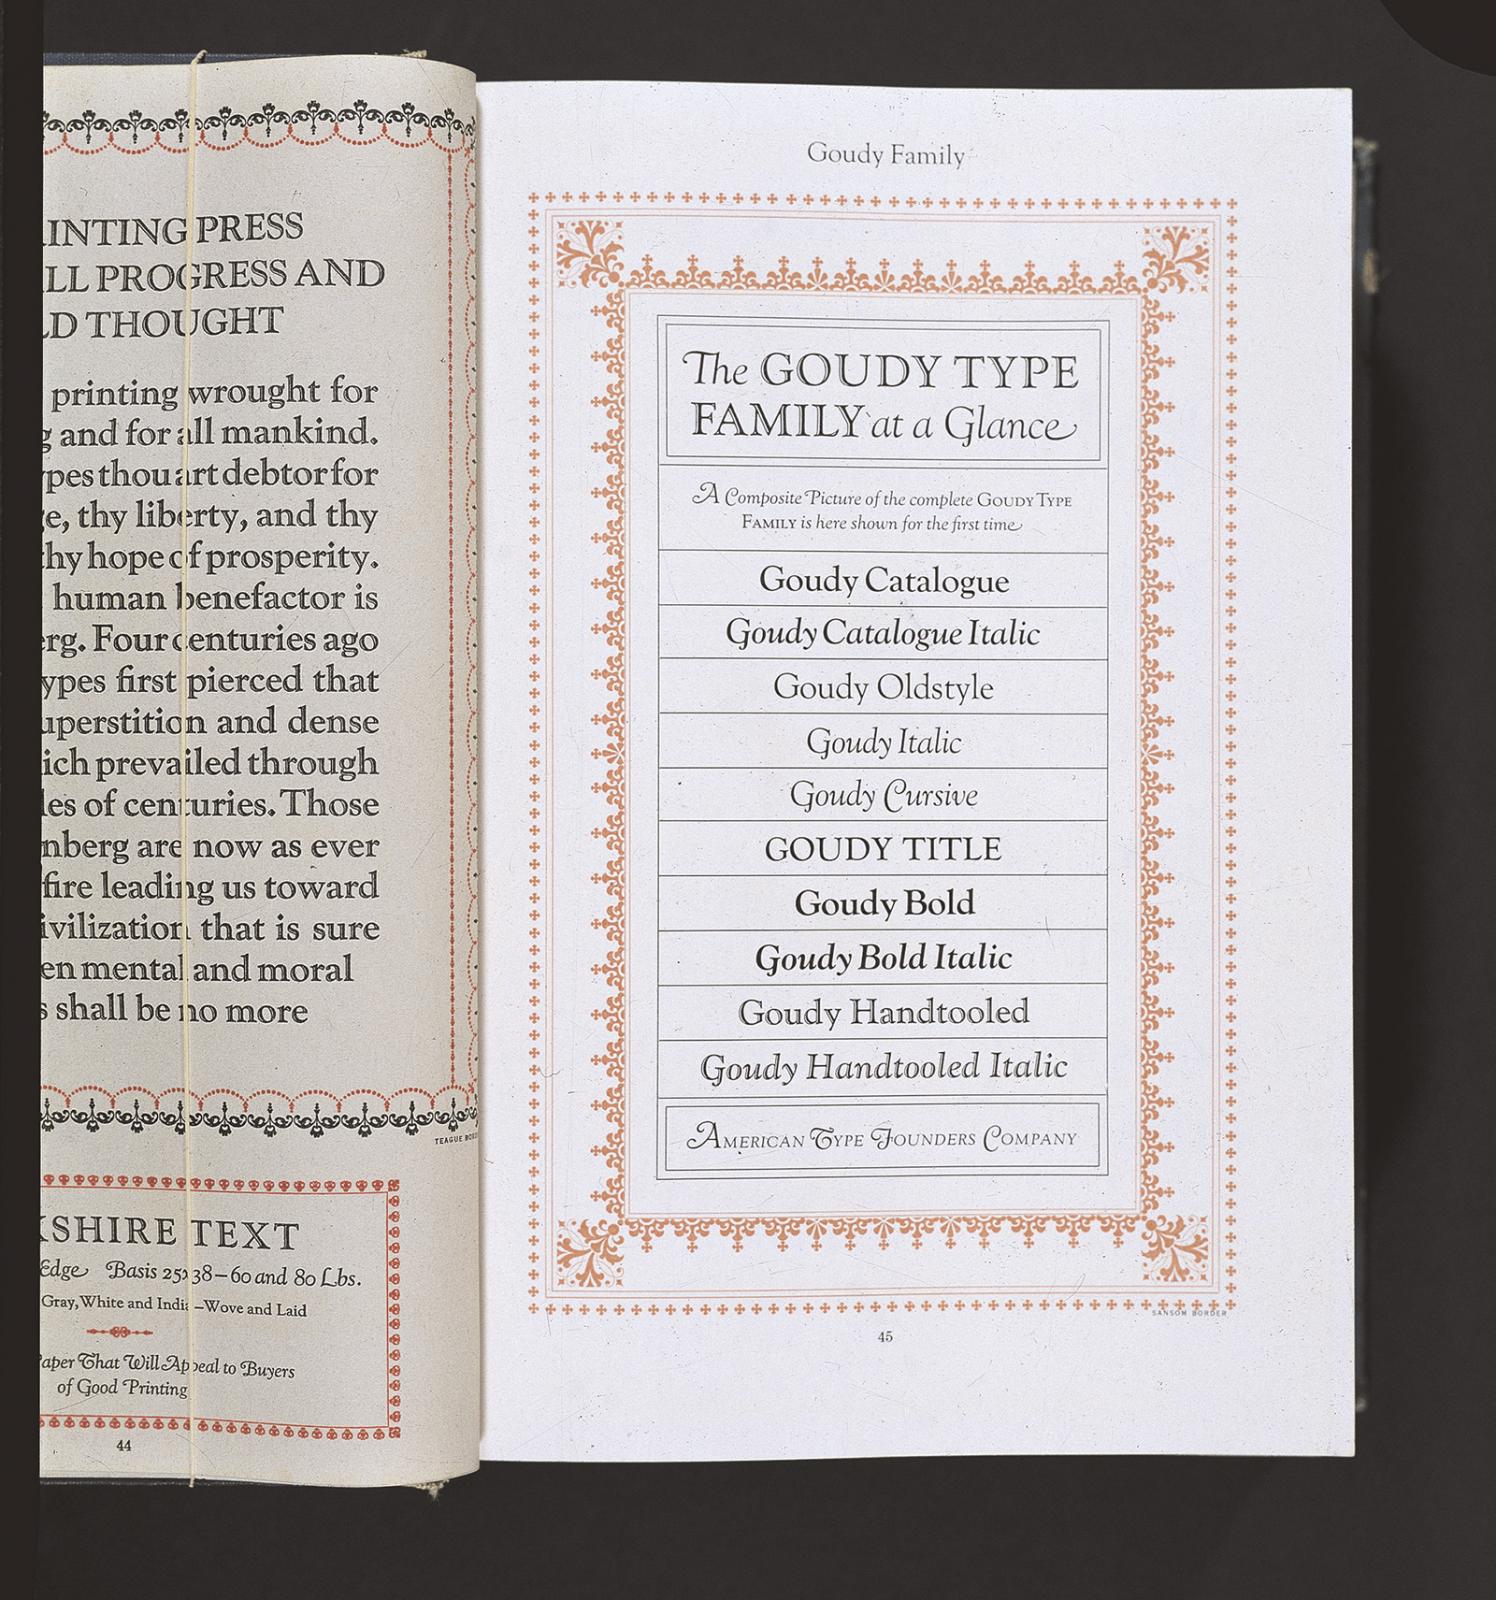 PRINTING PRESS
ALL PROGRESS AND
THOUGHT
printing wrought for
and for all mankind.
thou art debtor for
thy liberty, and thy
thy hope of prosperity.
human benefactor is
Four centuries ago
types first pierced that
superstition and dense
which prevailed through
of centuries. Those
are now as ever
fire leading us toward
civilization that is sure
mental and moral
shall be no more
TEAGUE BORDER
TEXT
Edge Basis 25x38—60 and 80 Lbs.
Gray, White and India—Wove and Laid
Paper That Will Appeal to Buyers
of Good Printing
44
Goudy Family
The GOUDY TYPE
FAMILY at a Glance
A Composite Picture of the complete GOUDY TYPE
FAMILY is here shown for the first time
Goudy Catalogue
Goudy Catalogue Italic
Goudy Oldstyle
Goudy Italic
Goudy Cursive
GOUDY TITLE
Goudy Bold
Goudy Bold Italic
Goudy Handtooled
Goudy Handtooled Italic
AMERICAN TYPE FOUNDERS COMPANY
SANSOM BORDER
45